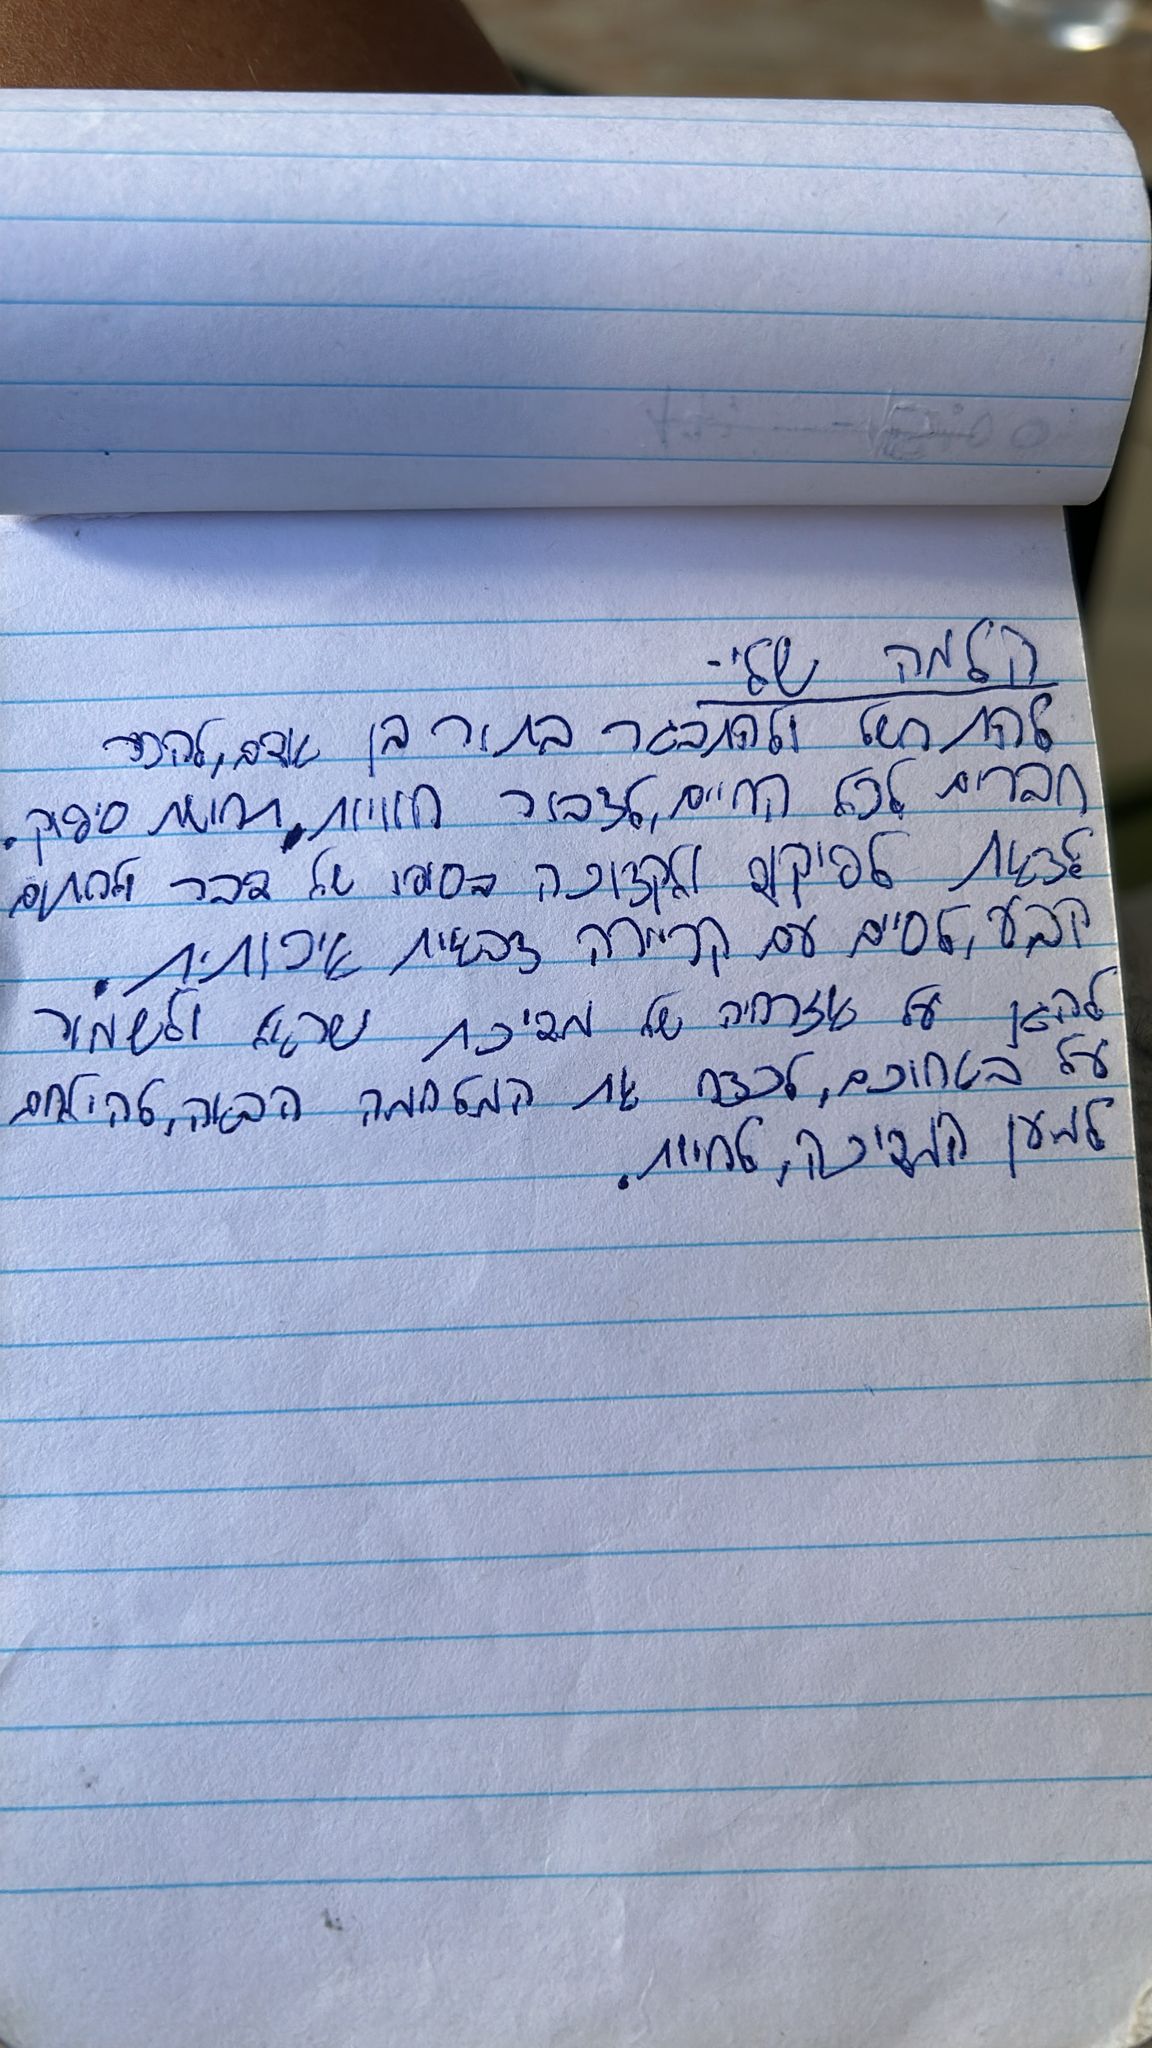 הלמה שלי-
להתחשל ולהתבגר בתור בן אדם, להכיר
חברים לכל החיים, לצבור חוויות, תחושת סיפוק.
לצאת לפיקוד ולקצונה בסופו של דבר ולחתום
קבע, לסיים עם קריירה צבאית איכותית.
להגן על אזרחיה של מדינת ישראל ולשמור
על בטחונם, לנצח את המלחמה הבאה, להילחם
למען המדינה, לחיות.